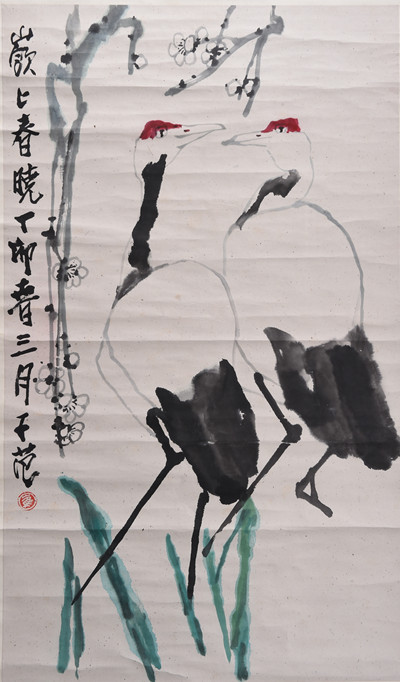 嶺上春曉丁卯春三月子范